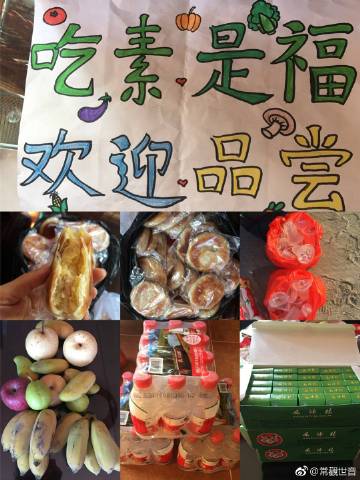 吃素是福
欢迎品尝
@常觀世音